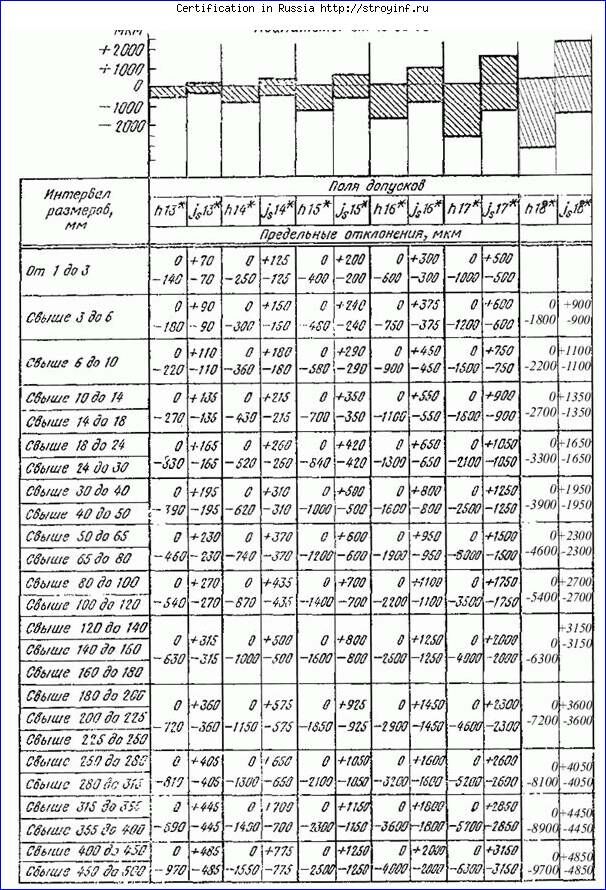 Certification in Russia http://stroyinf.ru
мкм
+2000
+1000
0
-1000
-2000
Интервал размеров, мм
Поля допусков
h13* js13* h14* js14* h15* js15* h16* js16* h17* js17* h18* js18*
Предельные отклонения, мкм
От 1 до 3
0 +70 0 +125 0 +200 0 +300 0 +500
-140 -70 -250 -125 -400 -200 -600 -300 -1000 -500
Свыше 3 до 6
0 +90 0 +150 0 +240 0 +375 0 +600 0 +900
-180 -90 -300 -150 -480 -240 -750 -375 -1200 -600 -1800 -900
Свыше 6 до 10
0 +110 0 +180 0 +290 0 +450 0 +750 0 +1100
-220 -110 -360 -180 -580 -290 -900 -450 -1500 -750 -2200 -1100
Свыше 10 до 14
0 +135 0 +215 0 +350 0 +550 0 +900 0 +1350
Свыше 14 до 18
-270 -135 -430 -215 -700 -350 -1100 -550 -1800 -900 -2700 -1350
Свыше 18 до 24
0 +165 0 +260 0 +420 0 +650 0 +1050 0 +1650
Свыше 24 до 30
-330 -165 -520 -260 -840 -420 -1300 -650 -2100 -1050 -3300 -1650
Свыше 30 до 40
0 +195 0 +310 0 +500 0 +800 0 +1250 0 +1950
Свыше 40 до 50
-390 -195 -620 -310 -1000 -500 -1600 -800 -2500 -1250 -3900 -1950
Свыше 50 до 65
0 +230 0 +370 0 +600 0 +950 0 +1500 0 +2300
Свыше 65 до 80
-460 -230 -740 -370 -1200 -600 -1900 -950 -3000 -1500 -4600 -2300
Свыше 80 до 100
0 +270 0 +435 0 +700 0 +1100 0 +1750 0 +2700
Свыше 100 до 120
-540 -270 -870 -435 -1400 -700 -2200 -1100 -3500 -1750 -5400 -2700
Свыше 120 до 140
Свыше 140 до 160
Свыше 160 до 180
0 +315 0 +500 0 +800 0 +1250 0 +2000 0 +3150
-630 -315 -1000 -500 -1600 -800 -2500 -1250 -4000 -2000 -6300 -3150
Свыше 180 до 200
Свыше 200 до 225
Свыше 225 до 250
0 +360 0 +575 0 +925 0 +1450 0 +2300 0 +3600
-720 -360 -1150 -575 -1850 -925 -2900 -1450 -4600 -2300 -7200 -3600
Свыше 250 до 280
0 +405 0 +650 0 +1050 0 +1600 0 +2600 0 +4050
Свыше 280 до 315
-810 -405 -1300 -650 -2100 -1050 -3200 -1600 -5200 -2600 -8100 -4050
Свыше 315 до 355
0 +445 0 +700 0 +1150 0 +1800 0 +2850 0 +4450
Свыше 355 до 400
-890 -445 -1400 -700 -2300 -1150 -3600 -1800 -5700 -2850 -8900 -4450
Свыше 400 до 450
0 +485 0 +775 0 +1250 0 +2000 0 +3150 0 +4850
Свыше 450 до 500
-970 -485 -1550 -775 -2500 -1250 -4000 -2000 -6300 -3150 -9700 -4850